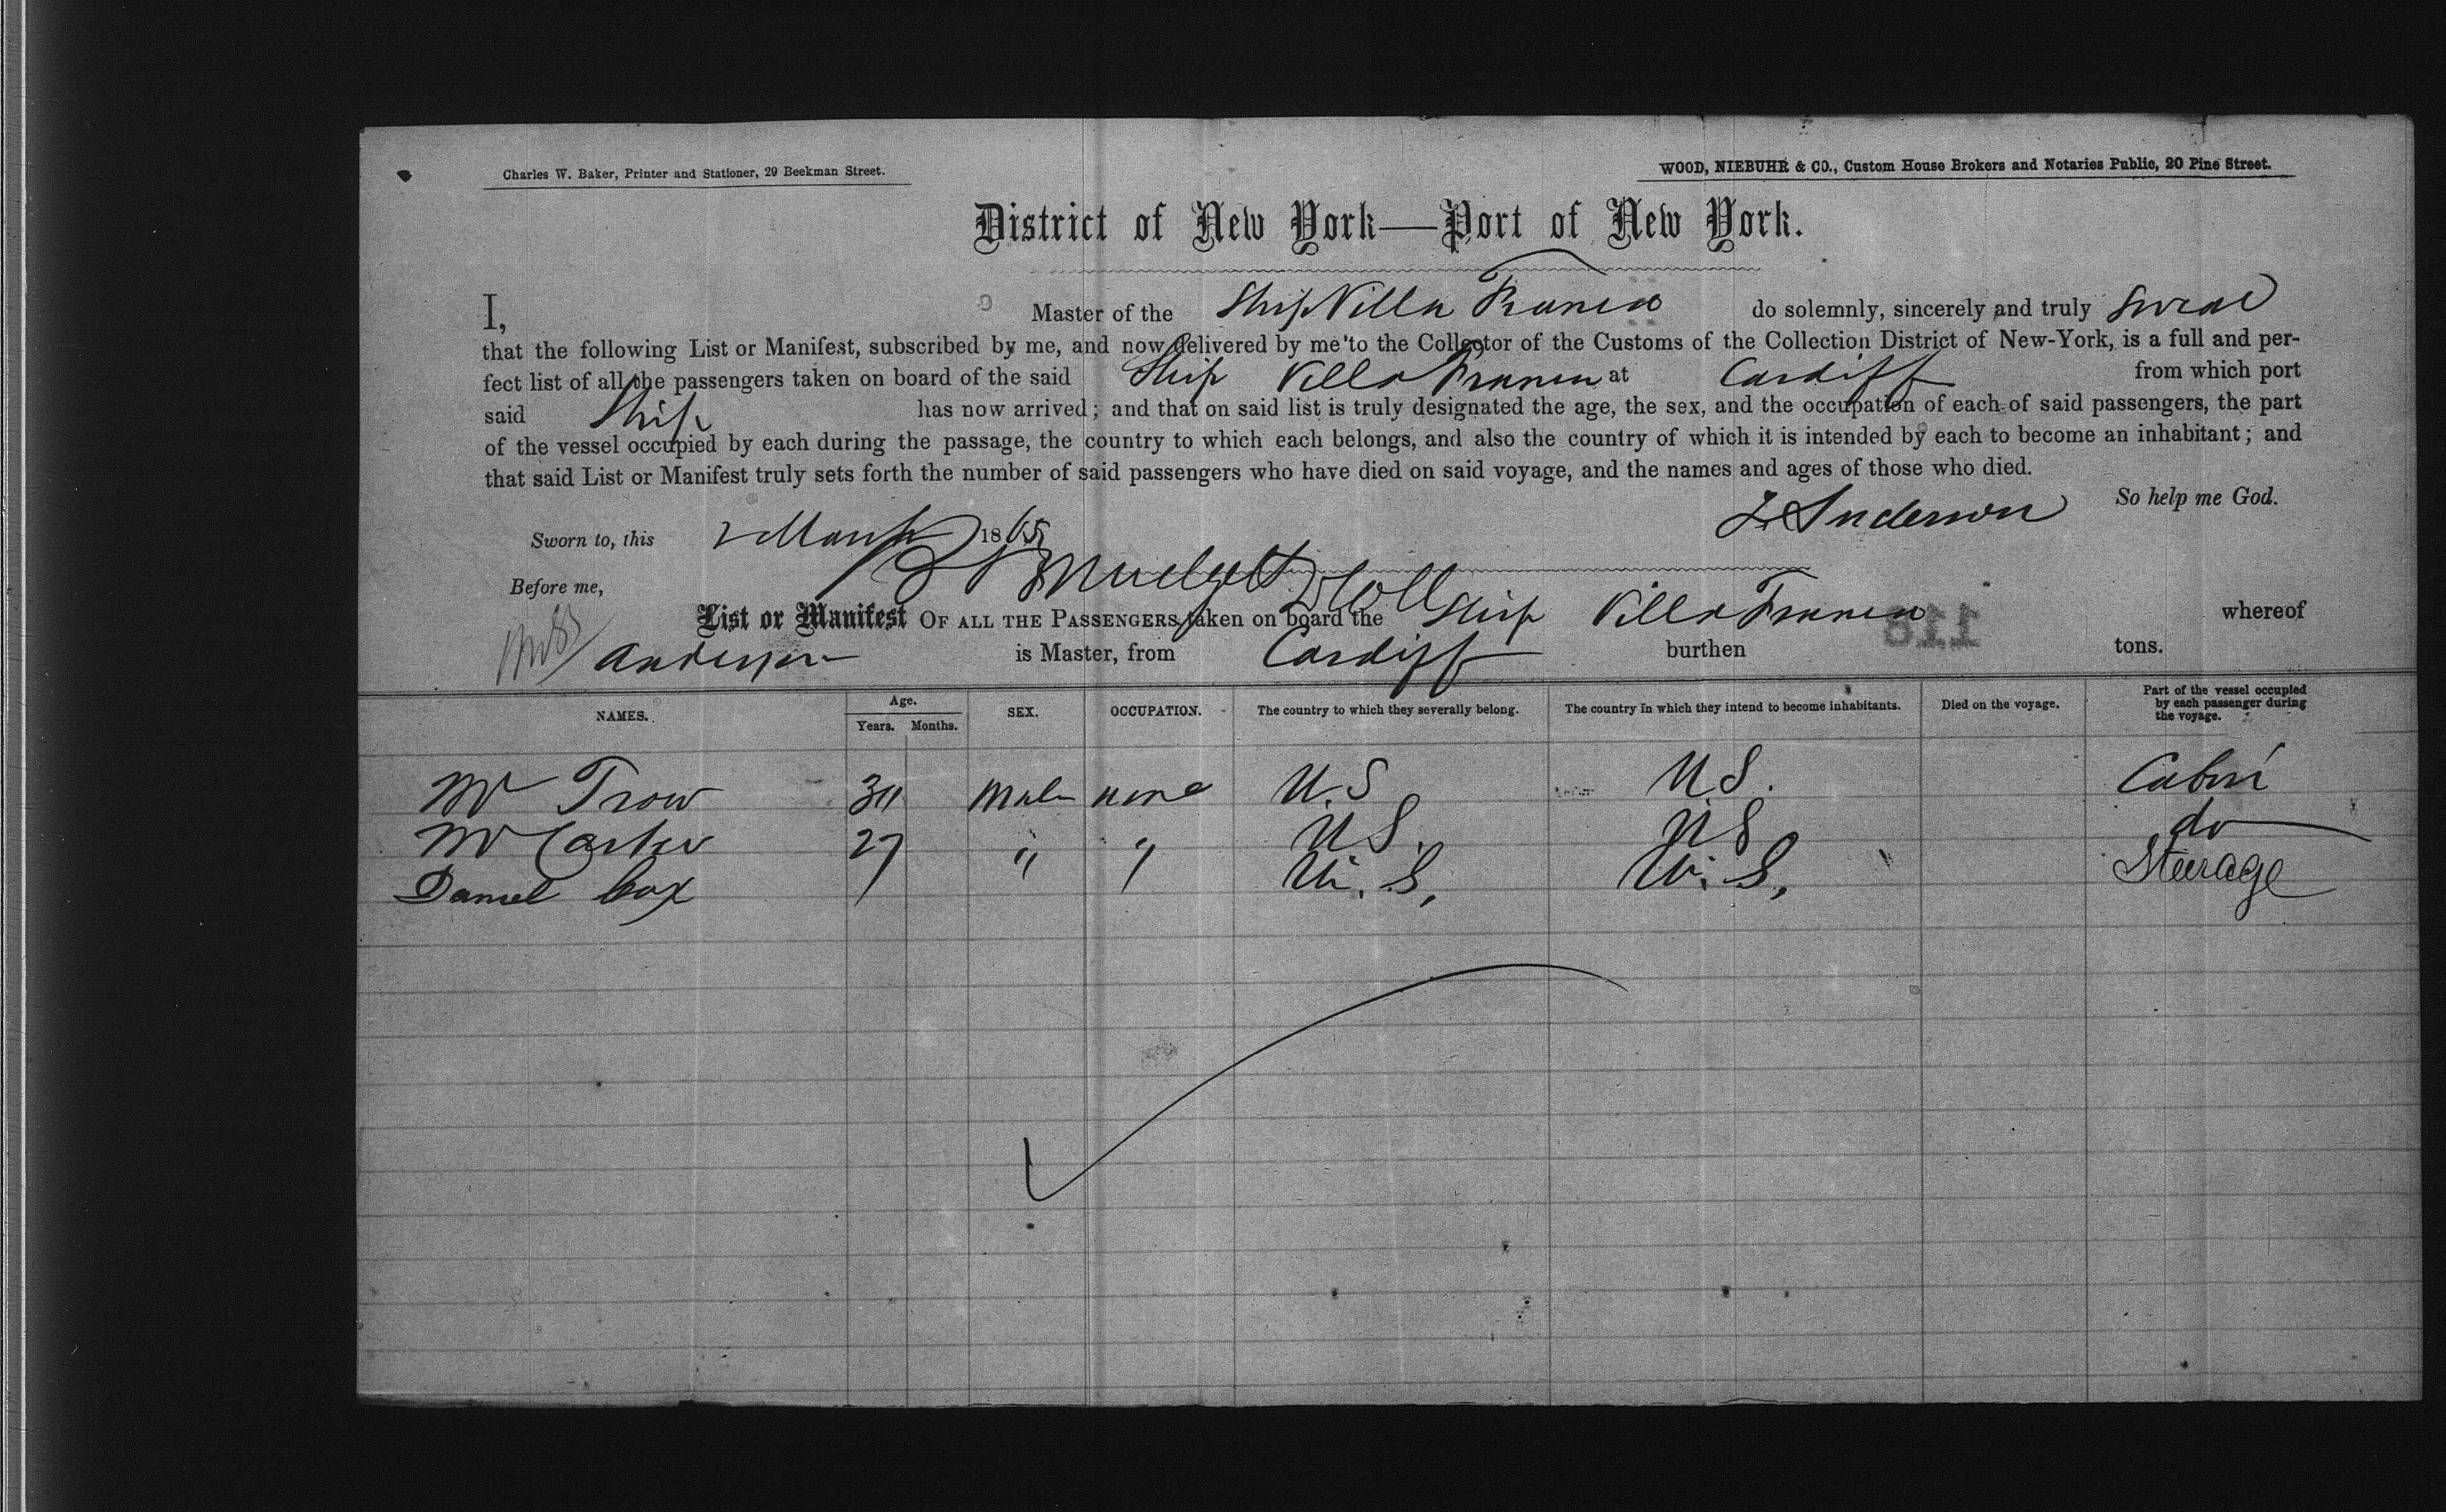 Charles W. Baker, Printer and Stationer, 29 Beekman Street.
WOOD, NIEBUHR & CO., Custom House Brokers and Notaries Public, 20 Pine Street.
District of New York—Port of New York.
I, Master of the Ship Villa Franca do solemnly, sincerely and truly swear
that the following List or Manifest, subscribed by me, and now delivered by me to the Collector of the Customs of the Collection District of New-York, is a full and per-
fect list of all the passengers taken on board of the said Ship Villa Franca at Cardiff from which port
said Ship has now arrived; and that on said list is truly designated the age, the sex, and the occupation of each of said passengers, the part
of the vessel occupied by each during the passage, the country to which each belongs, and also the country of which it is intended by each to become an inhabitant; and
that said List or Manifest truly sets forth the number of said passengers who have died on said voyage, and the names and ages of those who died.
So help me God.
Anderson
Sworn to, this 2 March 1865
Before me, Mudgett D Coll
List or Manifest OF ALL THE PASSENGERS taken on board the Ship Villa Franca whereof
Anderson is Master, from Cardiff burthen tons.
118
NAMES. Age. Years. Months. SEX. OCCUPATION. The country to which they severally belong. The country in which they intend to become inhabitants. Died on the voyage. Part of the vessel occupied by each passenger during the voyage.
Mr Trow Male none U.S U.S. Cabin
Mr Carter 27 " " U.S. U.S do
Daniel Cox U.S. U.S. Steerage